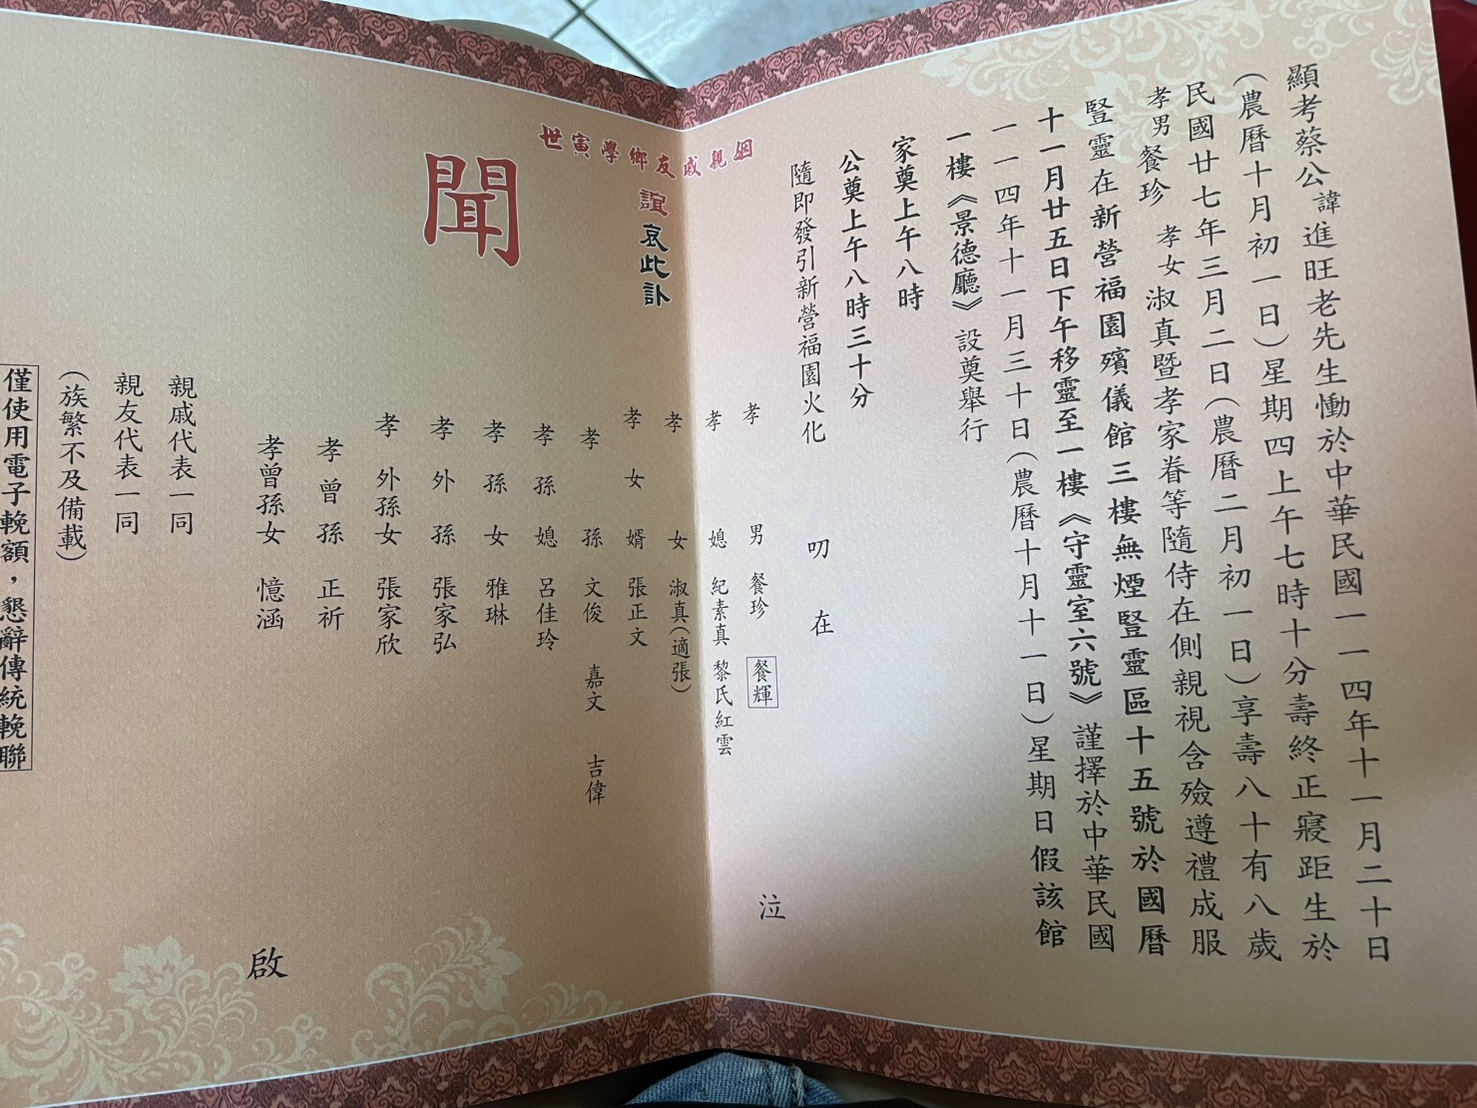 顯考蔡公諱進旺老先生慟於中華民國一一四年十一月二十日
(農曆十月初一日)星期四上午七時十分壽終正寢距生於
民國廿七年三月二日(農曆二月初一日)享壽八十有八歲
孝男餐珍 孝女淑真暨孝家眷等隨侍在側親視含殮遵禮成服
豎靈在新營福園殯儀館三樓無煙豎靈區十五號於國曆
十一月廿五日下午移靈至一樓《守靈室六號》謹擇於中華民國
一一四年十一月三十日(農曆十月十一日)星期日假該館
一樓《景德廳》設奠舉行
家奠上午八時
公奠上午八時三十分
隨即發引新營福園火化
叨在
姻親戚友鄉學寅世
誼哀此訃
聞
孝男 餐珍 餐輝
孝媳 紀素真 黎氏紅雲
孝女 淑真(適張)
孝女婿 張正文
孝孫 文俊 嘉文 吉偉
孝孫媳 呂佳玲
孝孫女 雅琳
孝外孫 張家弘
孝外孫女 張家欣
孝曾孫 正祈
孝曾孫女 憶涵
泣
啟
親戚代表一同
親友代表一同
(族繁不及備載)
僅使用電子輓額，懇辭傳統輓聯